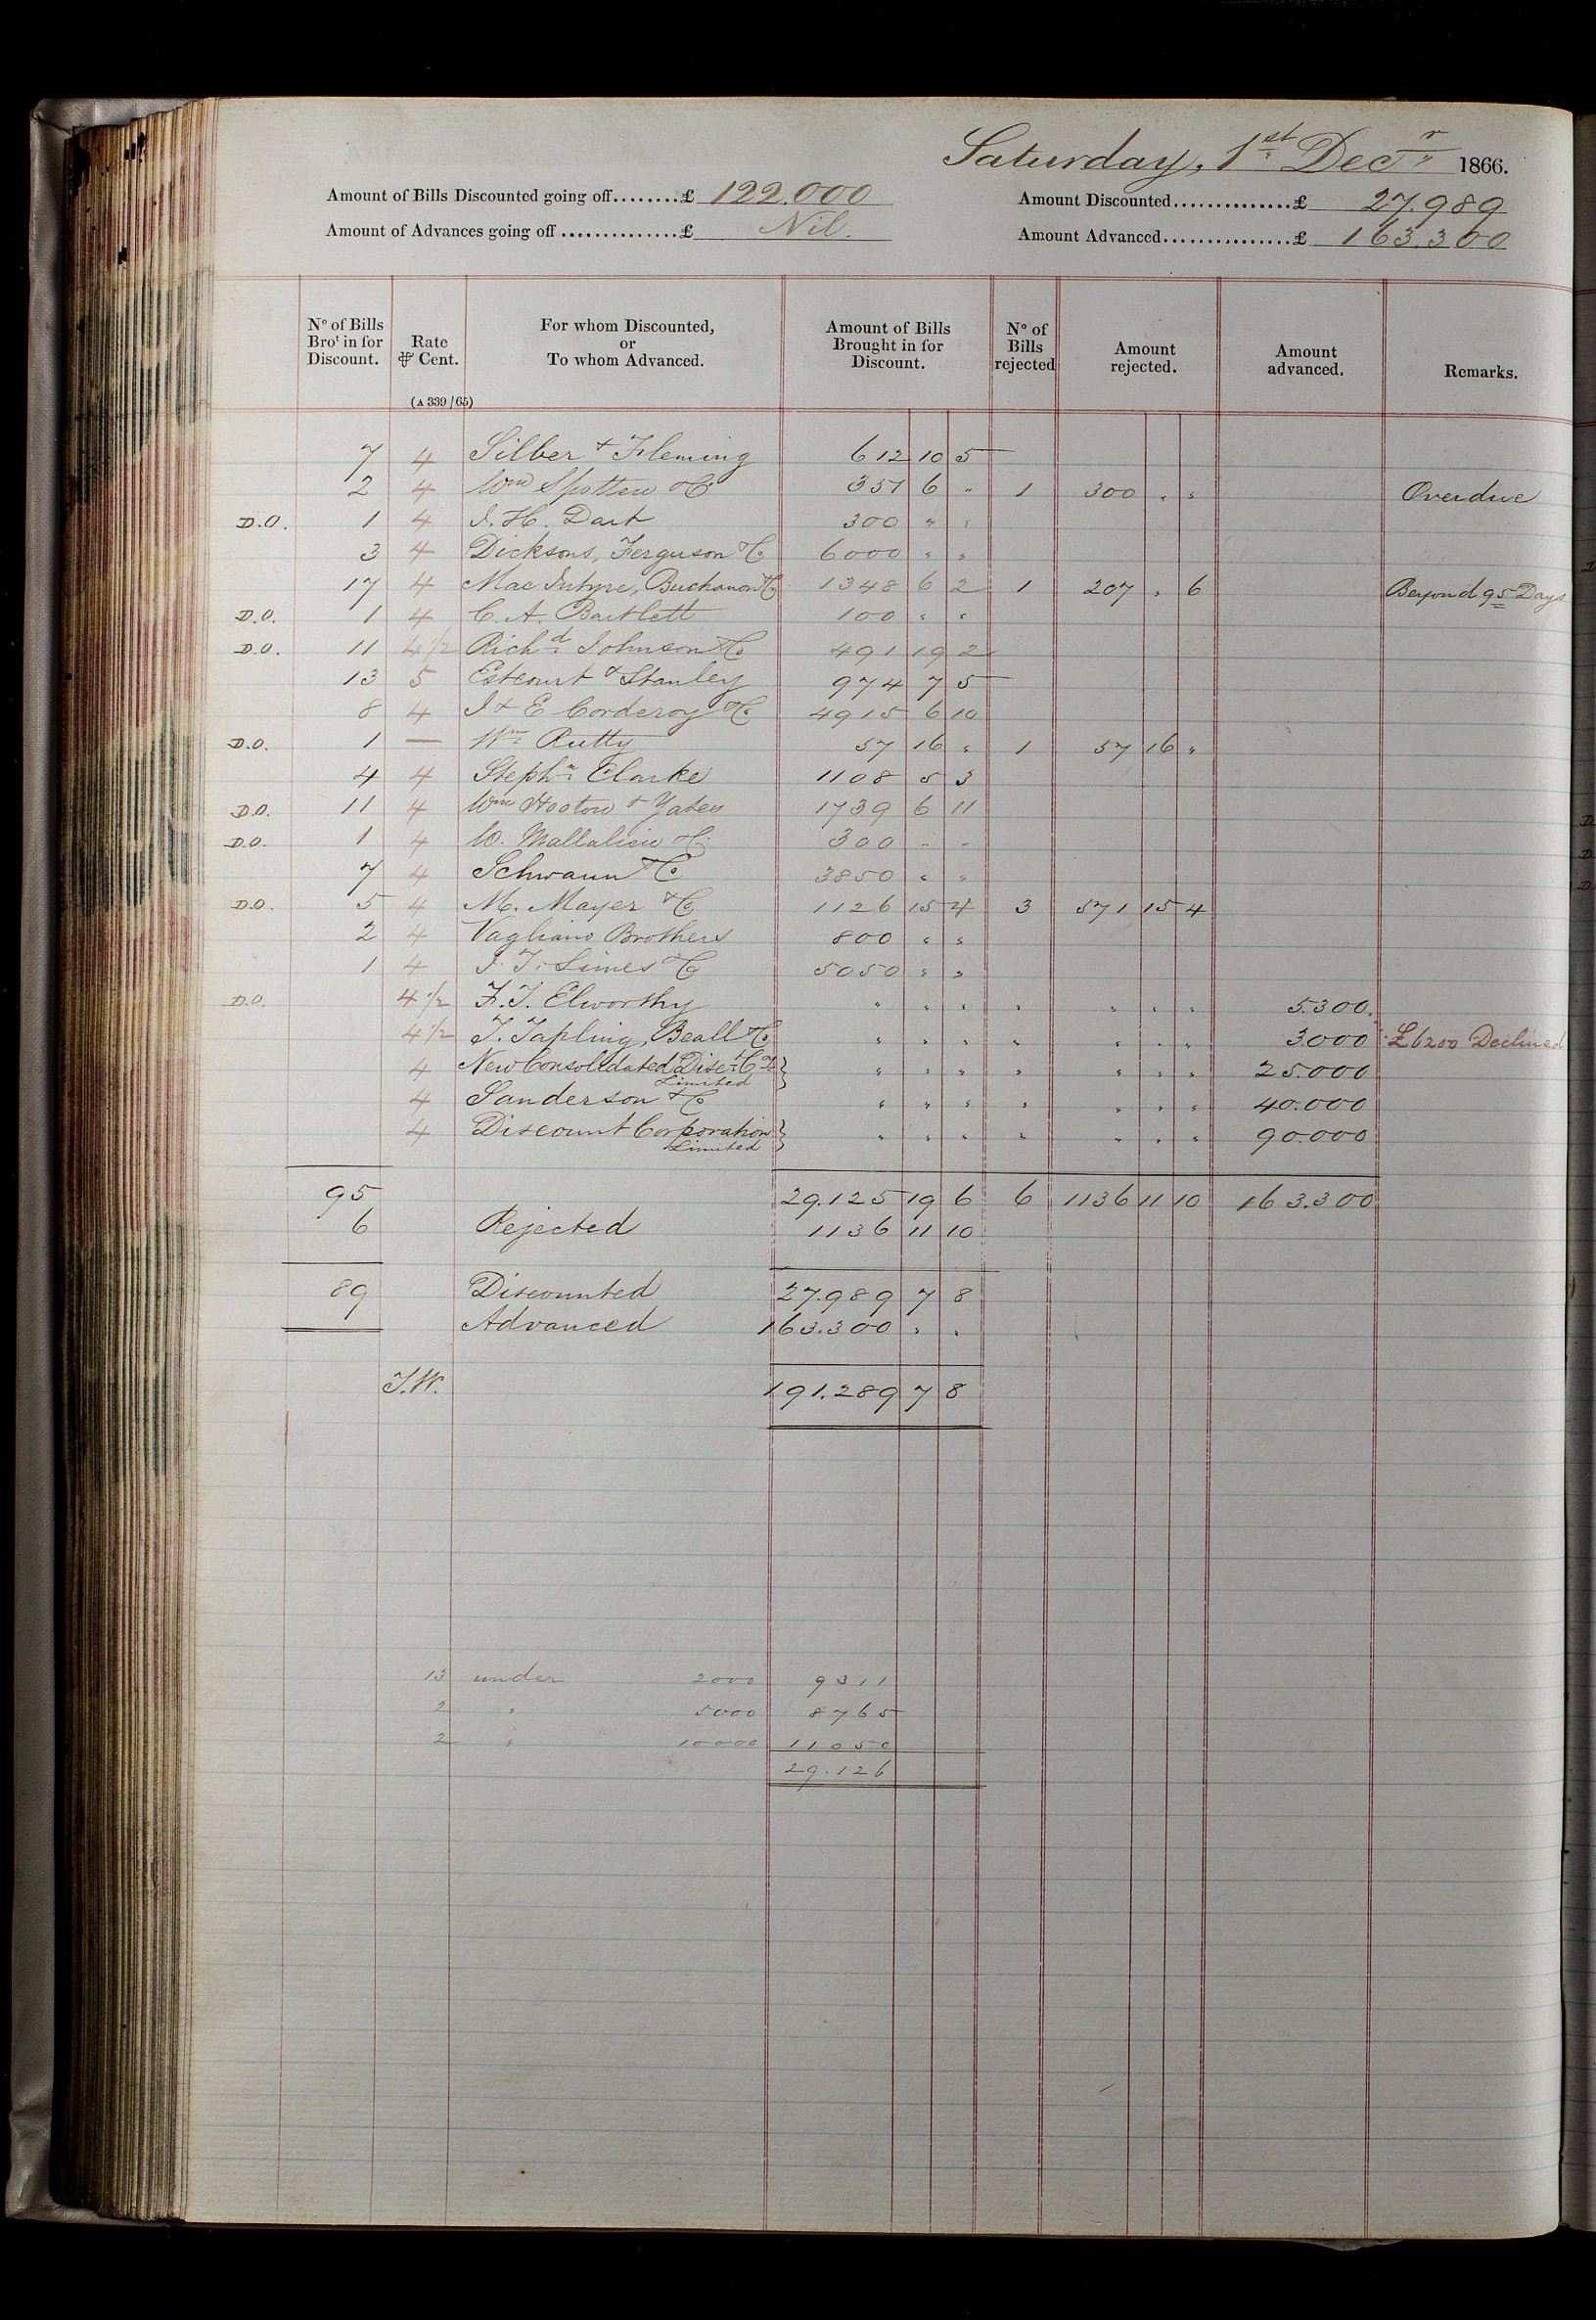 Saturday, 1st Decr 1866.
Amount of Bills Discounted going off........£ 122.000 Amount Discounted..............£ 27.989
Amount of Advances going off ..............£ Nil. Amount Advanced................£ 163.300
No of Bills Brot in for Discount. Rate ⅌ Cent. For whom Discounted, or To whom Advanced. Amount of Bills Brought in for Discount. No of Bills rejected Amount rejected. Amount advanced. Remarks.
(A 339/65)
7 4 Silber & Fleming 612 10 5
2 4 Wm Spotten & Co 351 6 " 1 300 " " Overdue
D.O. 1 4 J. H. Dart 300 " "
3 4 Dicksons, Ferguson & Co 6000 " "
17 4 Mac Intyre, Buchanan & Co 1348 6 2 1 207 " 6 Beyond 95 Days
D.O. 1 4 C. A. Bartlett 100 " "
D.O. 11 4 1/2 Richd Johnson & Co 491 19 2
13 5 Estcourt & Stanley 974 7 5
8 4 J & E Corderoy & Co 4915 6 10
D.O. 1 — Wm Rutty 57 16 " 1 57 16 "
4 4 Stephn Clarke 1108 5 3
D.O. 11 4 Wm Hooton & Yates 1739 6 11
D.O. 1 4 W. Mallalieu & Co 300 " "
7 4 Schwann & Co 3850 " "
D.O. 5 4 M. Mayer & Co 1126 15 4 3 571 15 4
2 4 Vagliano Brothers 800 " "
1 4 J. T. Simes & Co 5050 " "
D.O. 4 1/2 F. T. Elworthy " " " " " " " 5.300.
4 1/2 T. Tapling, Beall & Co " " " " " " " 3.000 £6200 Declined
4 New Consolidated Disct Coy } " " " " " " " 25.000
Limited
4 Sanderson & Co " " " " " " " 40.000
4 Discount Corporation } " " " " " " " 90.000
Limited
95 29.125 19 6 6 1136 11 10 163.300
6 Rejected 1136 11 10
89 Discounted 27.989 7 8
Advanced 163.300 " "
T.W. 191.289 7 8
13 under 2000 9311
2 " 5000 8765
2 " 10000 11050
29.126